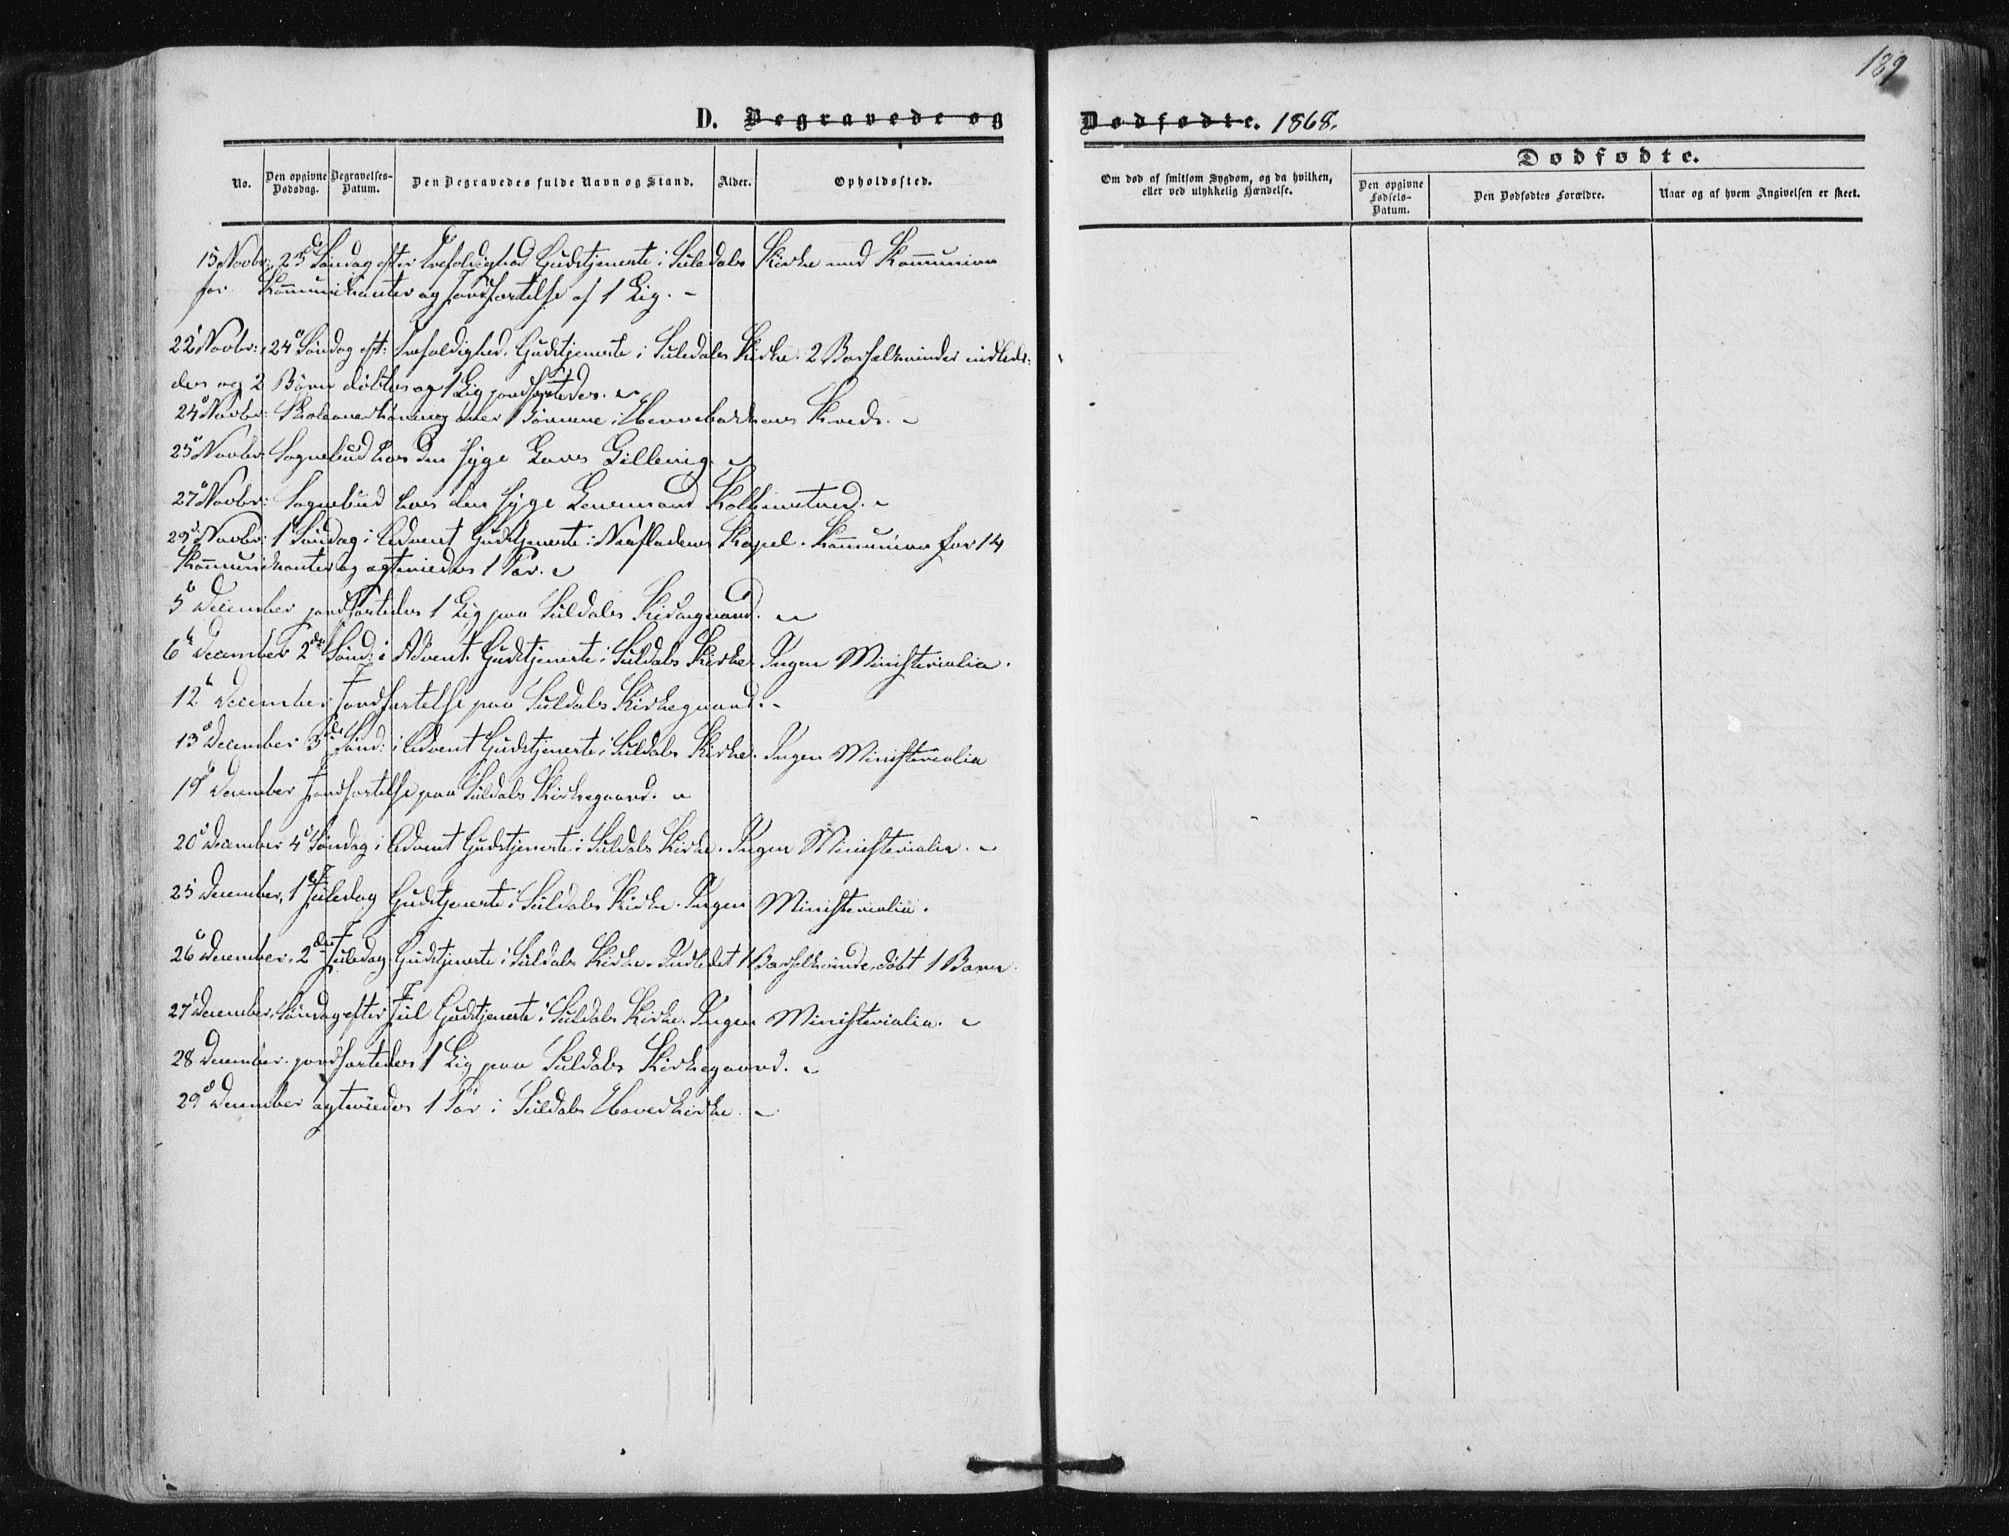 189
D. Begravede og Dødfødte. 1868.
No.
Den opgivne Dødsdag.
Begravelses-Datum.
Den Begravedes fulde Navn og Stand.
Alder.
Opholdssted.
Om død af smitsom Sygdom, og da hvilken, eller ved ulykkelig Hændelse.
Dødfødte.
Den opgivne Fødsels-Datum.
Den Dødfødtes Forældre.
Naar og af hvem Angivelsen er skeet.
15 Novbr: Søndag efter Trefoldighed Gudstjeneste i Suledals Kirke med Kommunion
for Kommunikanter og Jordfæstelse af 1 Lig. –
22 Novbr: 24 Søndag eft: Trefoldighed. Gudstjeneste i Suledals Kirke. 2 Barselkvinder indlede-
des og 2 Børn døbtes og 1 Lig jordfæstedes. –
24 Novbr: over Børnene i Kreds. –
25 Novbr: Sognebud hos den syge
27 Novbr: Sognebud hos den syge
29 Novbr: 1 Søndag i Advent Gudstjeneste i Kapel. Kommunion for 14
Kommunikanter og egteviedes 1 Par. –
5 December jordfæstedes 1 Lig paa Suldals Kirkegaard. –
6 December 2den Sønd: i Advent Gudstjeneste i Suldals Kirke. Ingen Ministerialia.
12 December Jordfæstelse paa Suldals Kirkegaard. –
13 December 3de Sønd: i Advent Gudstjeneste i Suldals Kirke. Ingen Ministerialia
19 December Jordfæstelse paa Suldals Kirkegaard. –
20 December 4 Søndag i Advent Gudstjeneste i Suldals Kirke. Ingen Ministerialia. –
25 December, 1ste Juledag Gudstjeneste i Suldals Kirke. Ingen Ministerialia.
26 December, 2den Juledag Gudstjeneste i Suldals Kirke. Indledet 1 Barselkvinde, døbt 1 Barn.
27 December, Søndag efter Jul Gudstjeneste i Suldals Kirke. Ingen Ministerialia. –
28 December jordfæstedes 1 Lig paa Suldals Kirkegaard. –
29 December egteviedes 1 Par i Suldals Hovedkirke. –